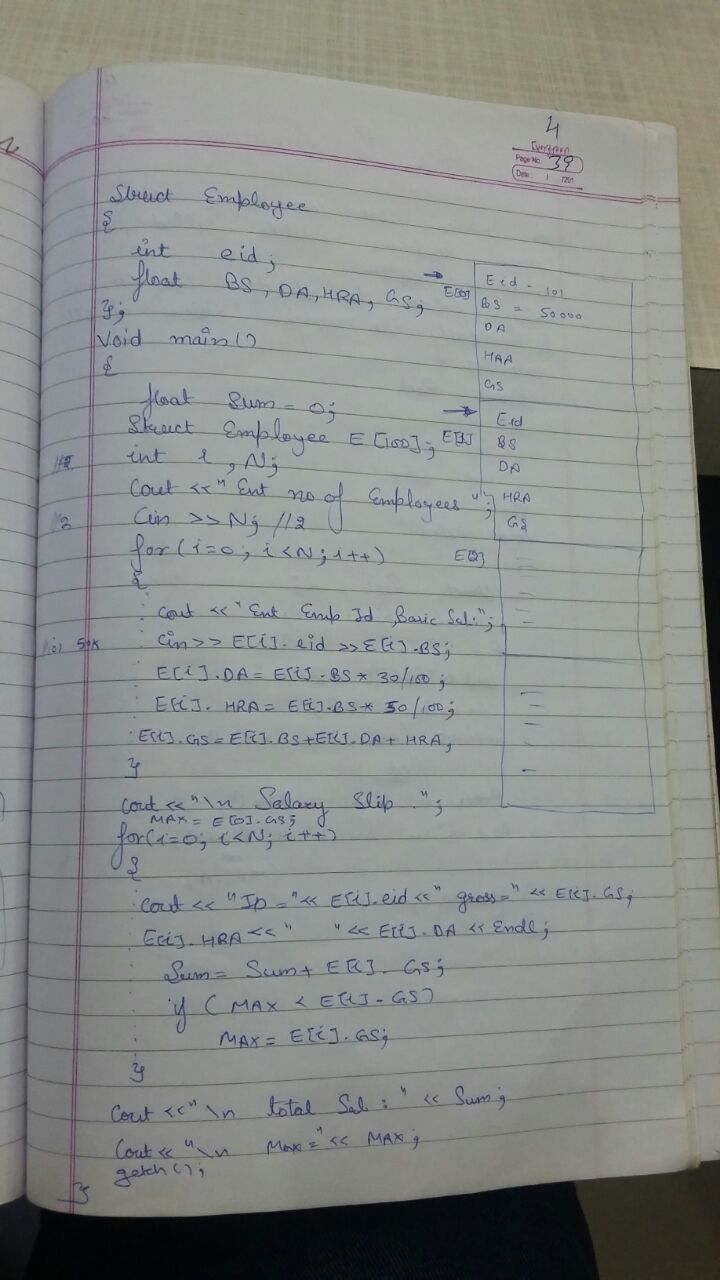 4
Evergreen
Page No. 39
Date: / /201
Struct Employee
{
int eid;
float BS, DA, HRA, GS;
};
Void main()
{
float Sum = 0;
Struct Employee E[100];
int i, N;
Cout <<" Ent no of Employees ";
Cin >> N; //2
for(i=0; i<N; i++)
{
cout << "Ent Emp Id, Basic Sal:";
Cin>> E[i].eid >>E[i].BS;
E[i].DA = E[i].BS * 30/100;
E[i].HRA = E[i].BS * 50/100;
E[i].GS = E[i].BS+E[i].DA+ HRA;
}
cout <<"\n Salary Slip ";
MAX = E[0].GS;
for(i=0; i<N; i++)
{
Cout << "ID ="<< E[i].eid <<" gross=" << E[i].GS;
E[i].HRA <<" "<< E[i].DA << Endl;
Sum = Sum + E[i].GS;
if (MAX < E[i].GS)
MAX = E[i].GS;
}
Cout <<"\n total Sal : " << Sum;
Cout << "\n Max =" << MAX;
getch();
}
2
101 50K
E[0]
Eid - 101
BS = 50000
DA
HAA
GS
E[1]
Eid
BS
DA
HRA
GS
E[2]